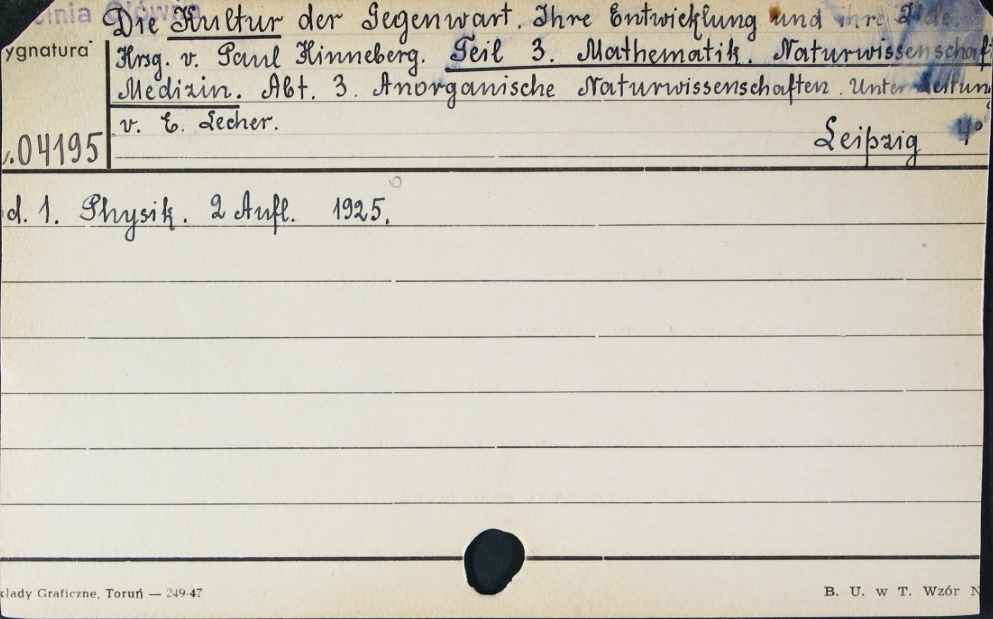 Die Kultur der Gegenwart. Ihre Entwicklung und ihre
ygnatura
Hrsg. v. Paul Hinneberg. Teil 3. Mathematik. Naturwissenschaf
Medizin. Abt. 3. Anorganische Naturwissenschaften. Unter
v. E. Lecher.
04195
Leipzig 4°
d. 1. Physik. 2 Aufl. 1925.
kłady Graficzne, Toruń — 249-47
B. U. w T. Wzór N